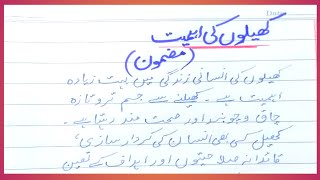 Date
کھیلوں کی اہمیت
(مضمون)
کھیلوں کی انسانی زندگی میں بہت زیادہ
اہمیت ہے۔ کھیلنے سے جسم تروتازہ
چاق و چوبند اور صحت مند رہتا ہے۔
کھیل کسی بھی انسان کی کردار سازی،
قائدانہ صلاحیتوں اور اہداف کے تعین